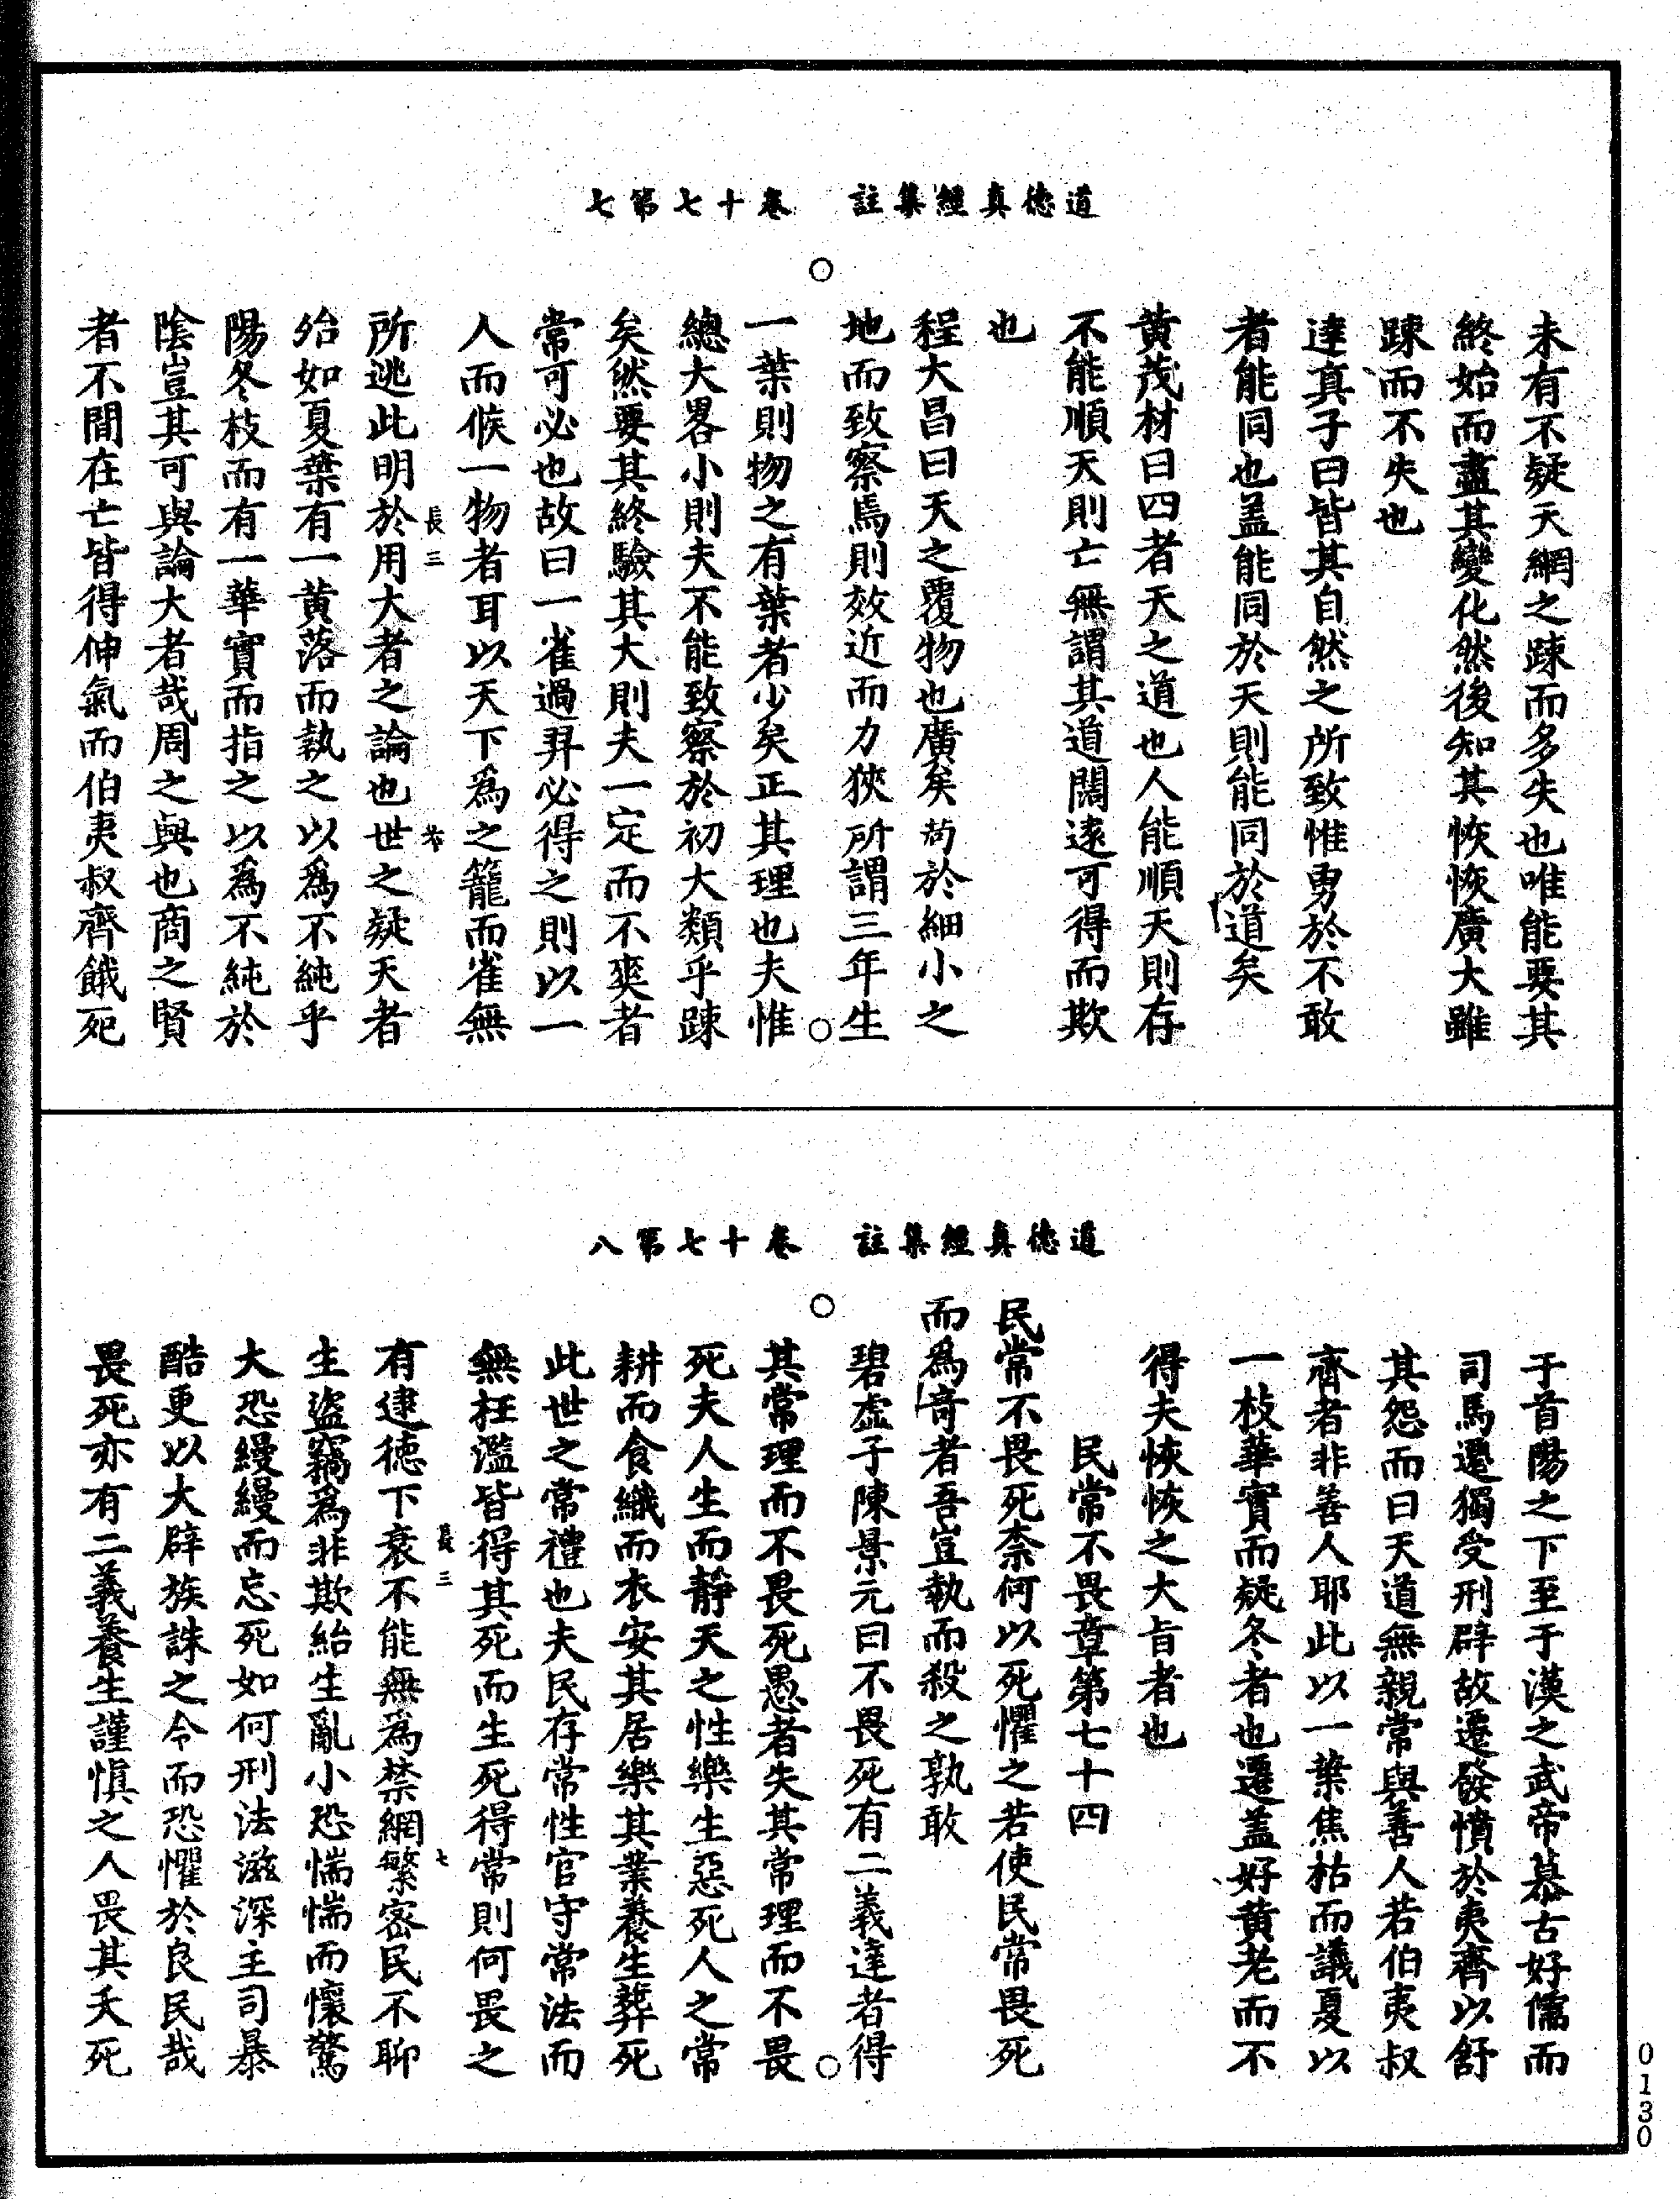 道德真經集註　卷十七第七
未有不疑天網之踈而多失也唯能要其
終始而盡其變化然後知其恢恢廣大雖
踈而不失也
達真子曰皆其自然之所致惟勇於不敢
者能同也蓋能同於天則能同於道矣
黄茂材曰四者天之道也人能順天則存
不能順天則亡無謂其道闊遠可得而欺
也
程大昌曰天之覆物也廣矣苟於細小之
地而致察焉則效近而力狹所謂三年生
一葉則物之有葉者少矣正其理也夫惟
總大畧小則夫不能致察於初大類乎踈
矣然要其終驗其大則夫一定而不爽者
常可必也故曰一雀過羿必得之則以一
人而候一物者耳以天下爲之籠而雀無
長三
所逃此明於用大者之論也世之疑天者
殆如夏葉有一黄落而執之以爲不純乎
陽冬枝而有一華實而指之以爲不純於
陰豈其可與論大者哉周之與也商之賢
者不間在亡皆得伸氣而伯夷叔齊餓死
道德真經集註　卷十七第八
于首陽之下至于漢之武帝慕古好儒而
司馬遷獨受刑辟故遷發憤於夷齊以舒
其怨而曰天道無親常與善人若伯夷叔
齊者非善人耶此以一葉焦枯而議夏以
一枝華實而疑冬者也遷蓋好黄老而不
得夫恢恢之大旨者也
民常不畏章第七十四
民常不畏死柰何以死懼之若使民常畏死
而爲奇者吾豈執而殺之孰敢
碧虛子陳景元曰不畏死有二義達者得
其常理而不畏死愚者失其常理而不畏
死夫人生而靜天之性樂生惡死人之常
耕而食織而衣安其居樂其業養生葬死
此世之常禮也夫民存常性官守常法而
無枉濫皆得其死而生死得常則何畏之
長三 七
有逮德下衰不能無爲禁網繁密民不聊
生盜竊爲非欺紿生亂小恐惴惴而懷驚
大恐縵縵而忘死如何刑法滋深主司暴
酷更以大辟族誅之令而恐懼於良民哉
畏死亦有二義養生謹愼之人畏其夭死
0130